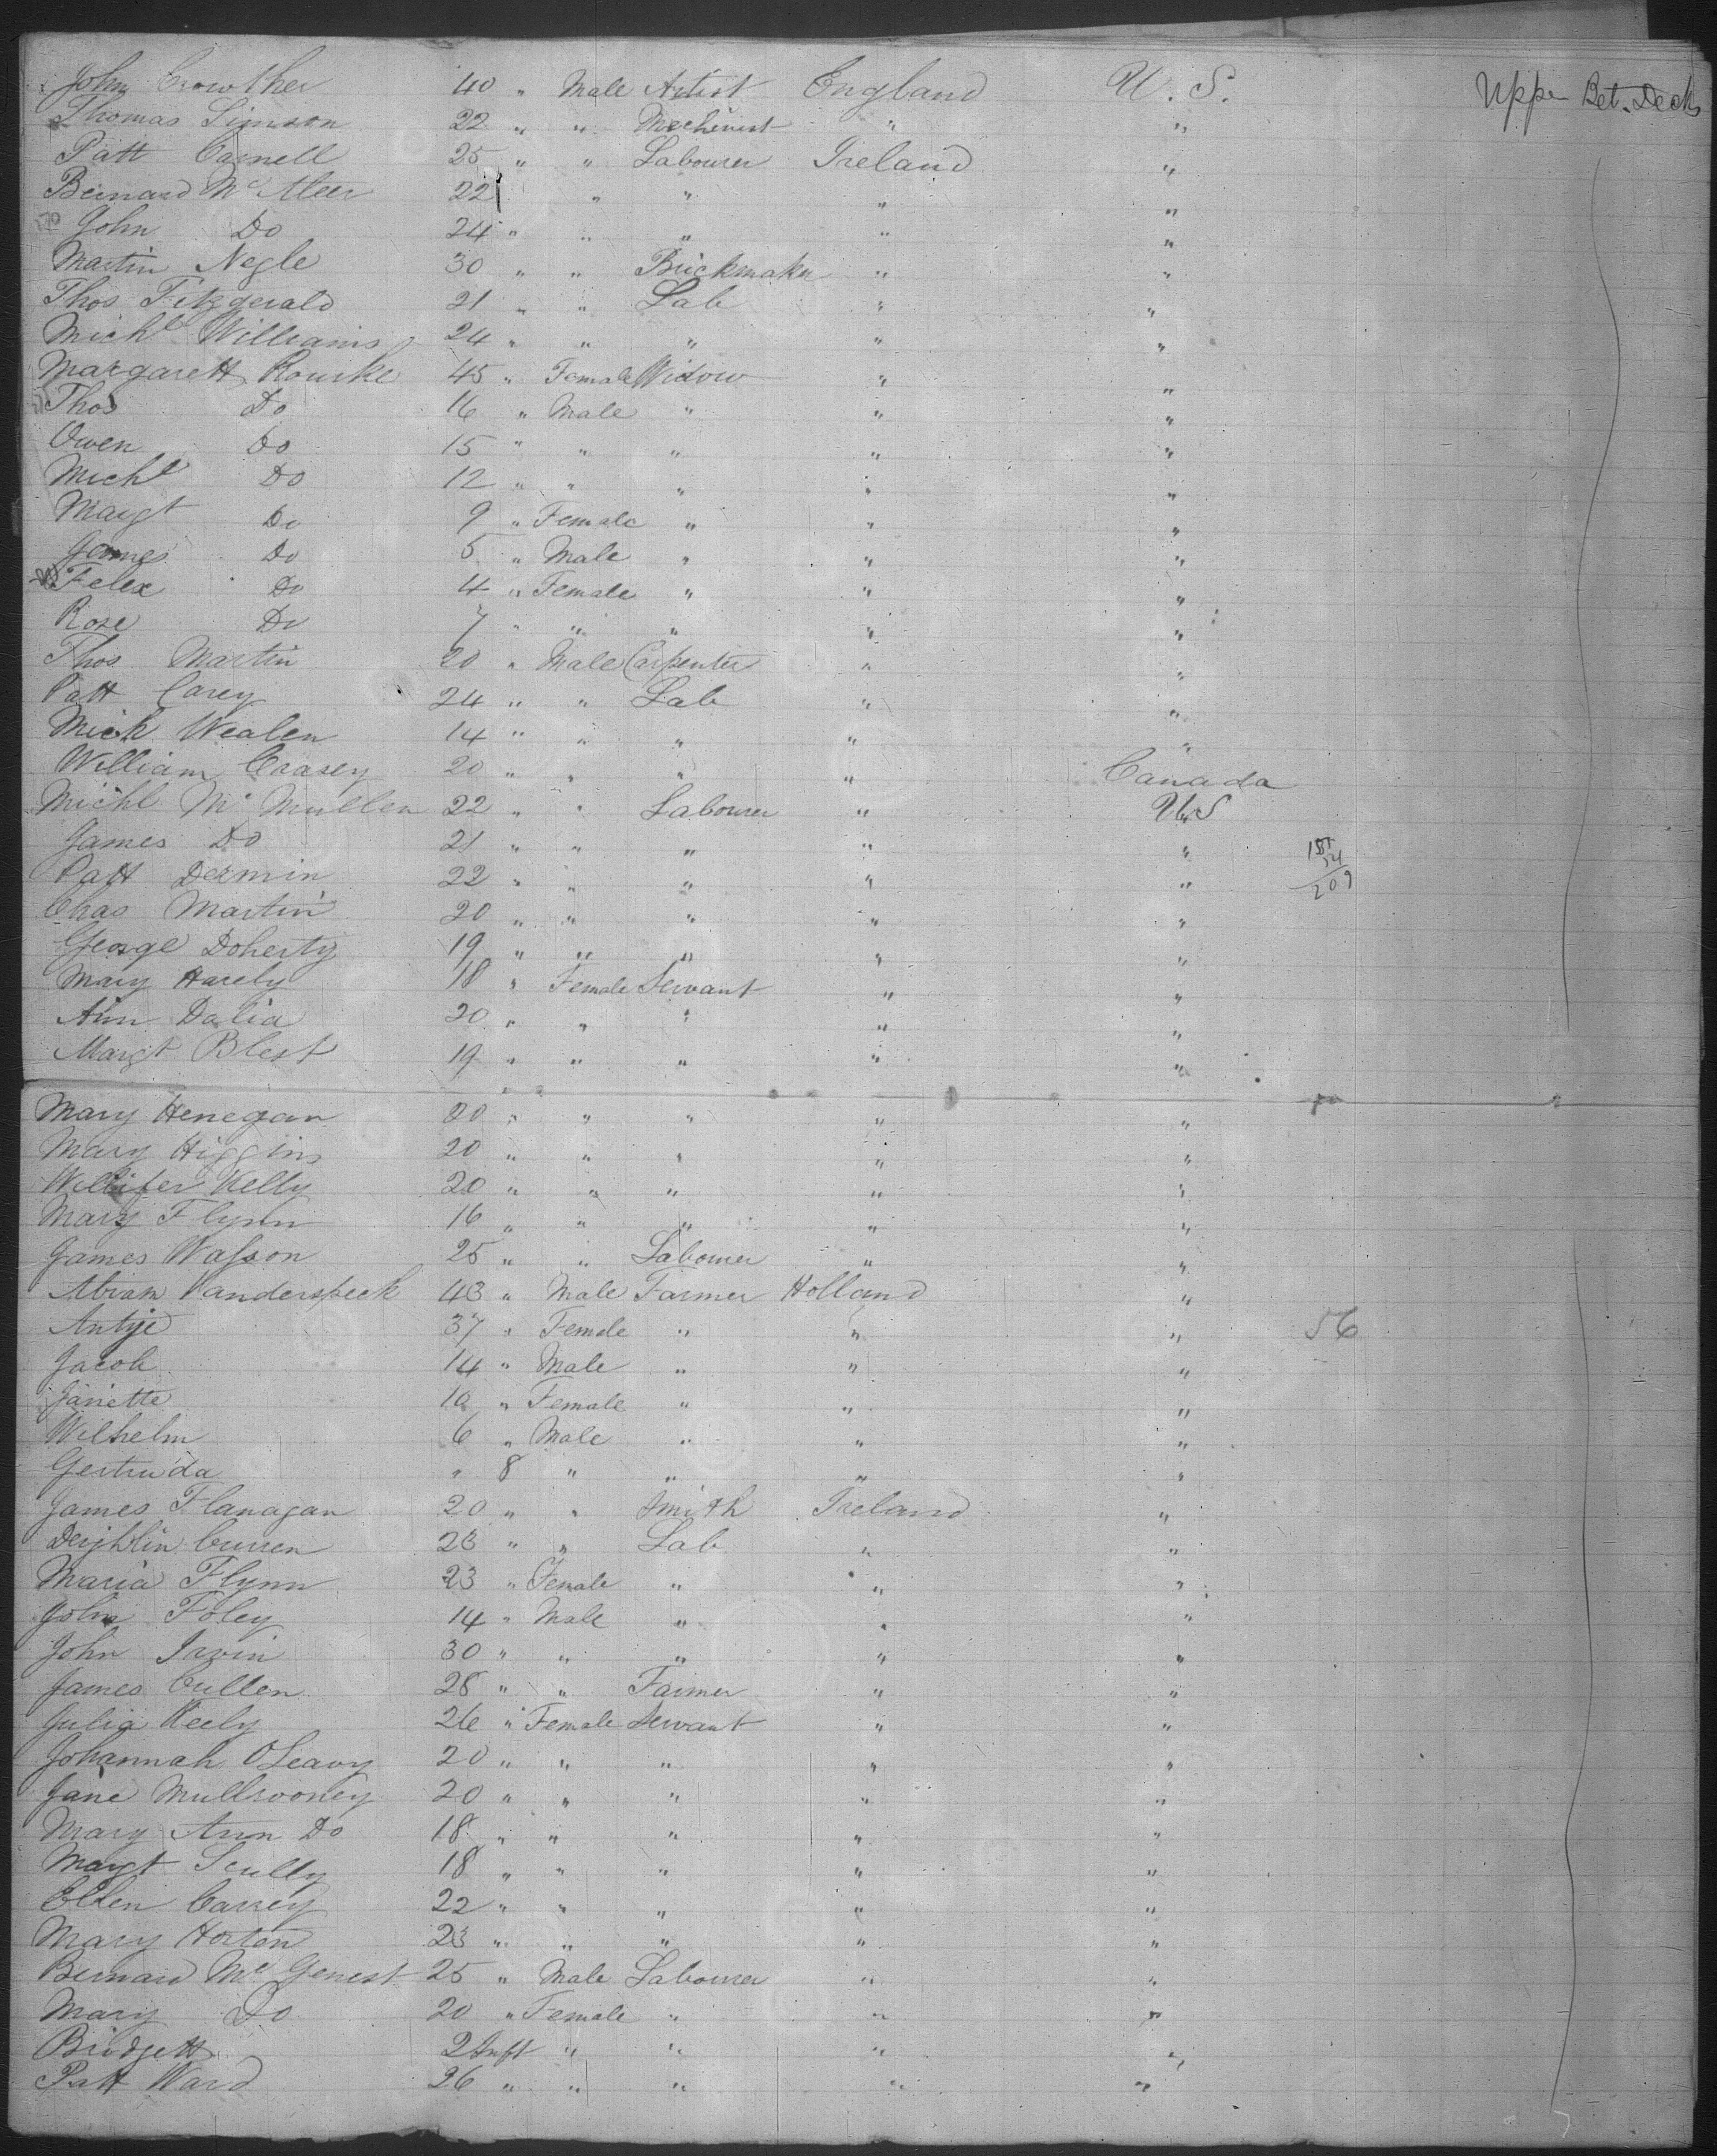 John Crowther 40 " Male Artist England U. S. Upper Bet. Decks
Thomas Simson 22 " " Mechinist " "
Patt Carnell 25 " " Labourer Ireland "
Bernard Mc Aleer 22 " " " "
John Do 24 " " " " "
Martin Negle 30 " " Brickmaker " "
Thos Fitzgerald 21 " " Lab " "
Michl Williams 24 " " " " "
Margarett Rourke 45 " Female Widow " "
Thos Do 16 " Male " " "
Owen Do 15 " " " " "
Michl Do 12 " " " " "
Margt Do 9 " Female " " "
James Do 5 " Male " " "
Felex Do 4 " Female " " "
Rose Do 7 " " " " "
Thos Martin 20 " Male Carpenter " "
Patt Carey 24 " " Lab " "
Mick Wealen 14 " " " " "
William Crasey 20 " " " " Canada
Michl Mc Mullen 22 " " Labourer " U.S
James Do 21 " " " " "
Patt Dermin 22 " " " " " 209
Chas Martin 20 " " " " "
George Doherty 19 " " " " "
Mary Harely 18 " Female Servant " "
Ann Dalia 20 " " " " "
Margt Blest 19 " " " " "
Mary Henegan 20 " " " " "
Mary Higgins 20 " " " " "
Kelly 20 " " " " "
Mary Flynn 16 " " " " "
James Wasson 25 " " Labourer " "
Abram Vanderspeck 43 " Male Farmer Holland "
Antje 37 " Female " " " 56
Jacob 14 " Male " " "
Janette 10 " Female " " "
Wilhelm 6 " Male " " "
Gertruda " 8 " " " "
James Flanagan 20 " " Smith Ireland "
Curren 23 " " Lab " "
Maria Flynn 23 " Female " " "
John Foley 14 " Male " " "
John Irvin 30 " " " " "
James Cullen 28 " " Farmer " "
Julia Keely 26 " Female Servant " "
Johannah OLeavy 20 " " " " "
Jane Mullrooney 20 " " " " "
Mary Ann Do 18 " " " " "
Margt Scully 18 " " " " "
Ellen Carrey 22 " " " " "
Mary Horton 23 " " " " "
Bernard Mc Genest 25 " Male Labourer " "
Mary Do 20 " Female " " "
Bridgett 2 Inft " " " "
Patt Ward 26 " " " " "